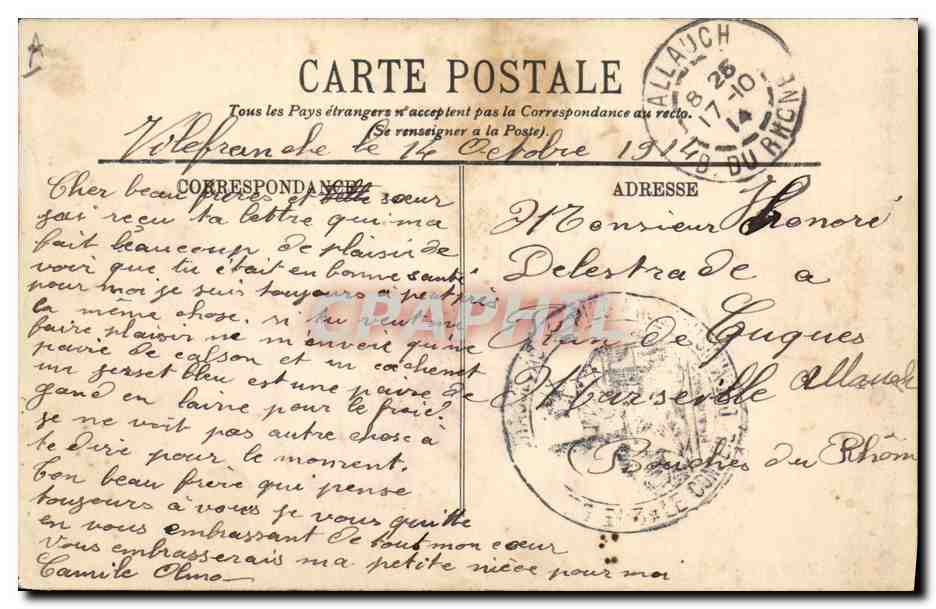 CARTE POSTALE
Tous les Pays étrangers n'acceptent pas la Correspondance au recto.
(Se renseigner à la Poste).
Vilefranche le 14 Octobre 1914
CORRESPONDANCE
Cher beau frères et sœur
jai reçu ta lettre qui ma
fait beaucoup de plaisir de
voir que tu était en bonne santé
pour moi je suis toujours à peut près
la même chose. si tu veut me
faire plaisir ne m'envere qu'une
paire de calson et un cachenet
un gerset bleu est une paire de
gand en lainne pour le froid.
je ne voit pas autre chose à
te dire pour le moment.
Ton beau frère qui pense
toujours à vous je vous quitte
en vous embrassant de tout mon cœur
Vous embrasserais ma petite nièce pour moi
Camile Olmo
ADRESSE
Monsieur Honoré
Delestrade a
Plan de Cuques
Marseille Allauch
Bouches du Rhôn
ALLAUCH
8 25
17-10
14
B. DU RHONE
CRAPHIL